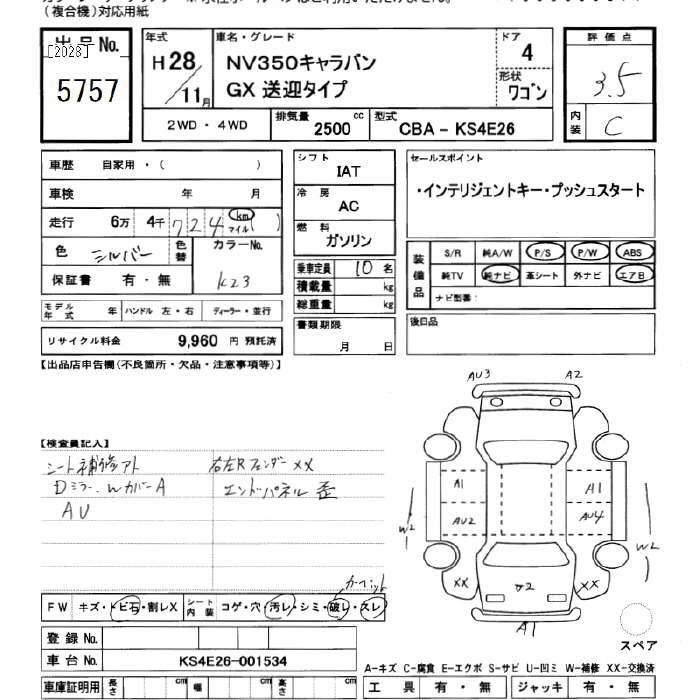 (複合機)対応用紙
出品No.
[2028]
5757
年式
H28/11月
車名・グレード
NV350キャラバン
GX 送迎タイプ
ドア
4
形状
ワゴン
評価点
3.5
内装
C
2WD・4WD
排気量
2500 cc
型式
CBA - KS4E26
車歴 自家用・( )
車検 年 月
走行 6万 4千 724 km マイル ( )
色 シルバー
色替
カラーNo.
K23
保証書 有・無
モデル年式 年
ハンドル 左・右
ディーラー・並行
リサイクル料金 9,960 円 預託済
シフト
IAT
冷房
AC
燃料
ガソリン
乗車定員 10 名
積載量 kg
総重量 kg
書類期限
月 日
セールスポイント
・インテリジェントキー・プッシュスタート
装備品
S/R 純A/W P/S P/W ABS
純TV 純ナビ 革シート 外ナビ エアB
ナビ型番:
後日品
【出品店申告欄(不良箇所・欠品・注意事項等)】
【検査員記入】
シート補修アト 右左Rフェンダー XX
Dミラー、WカバーA エンドパネル 歪
AU
カーペット
FW キズ・トビ石・割レX
シート内装 コゲ・穴・汚レ・シミ・破レ・スレ
登録No.
車台No. KS4E26-001534
車庫証明用 長さ cm 幅 cm 高さ cm
AU3
A2
A1
A1
AU2
AU4
W2
W2
XX
XX
U2
A1
スペア
A-キズ C-腐食 E-エクボ S-サビ U-凹ミ W-補修 XX-交換済
工具 有・無
ジャッキ 有・無